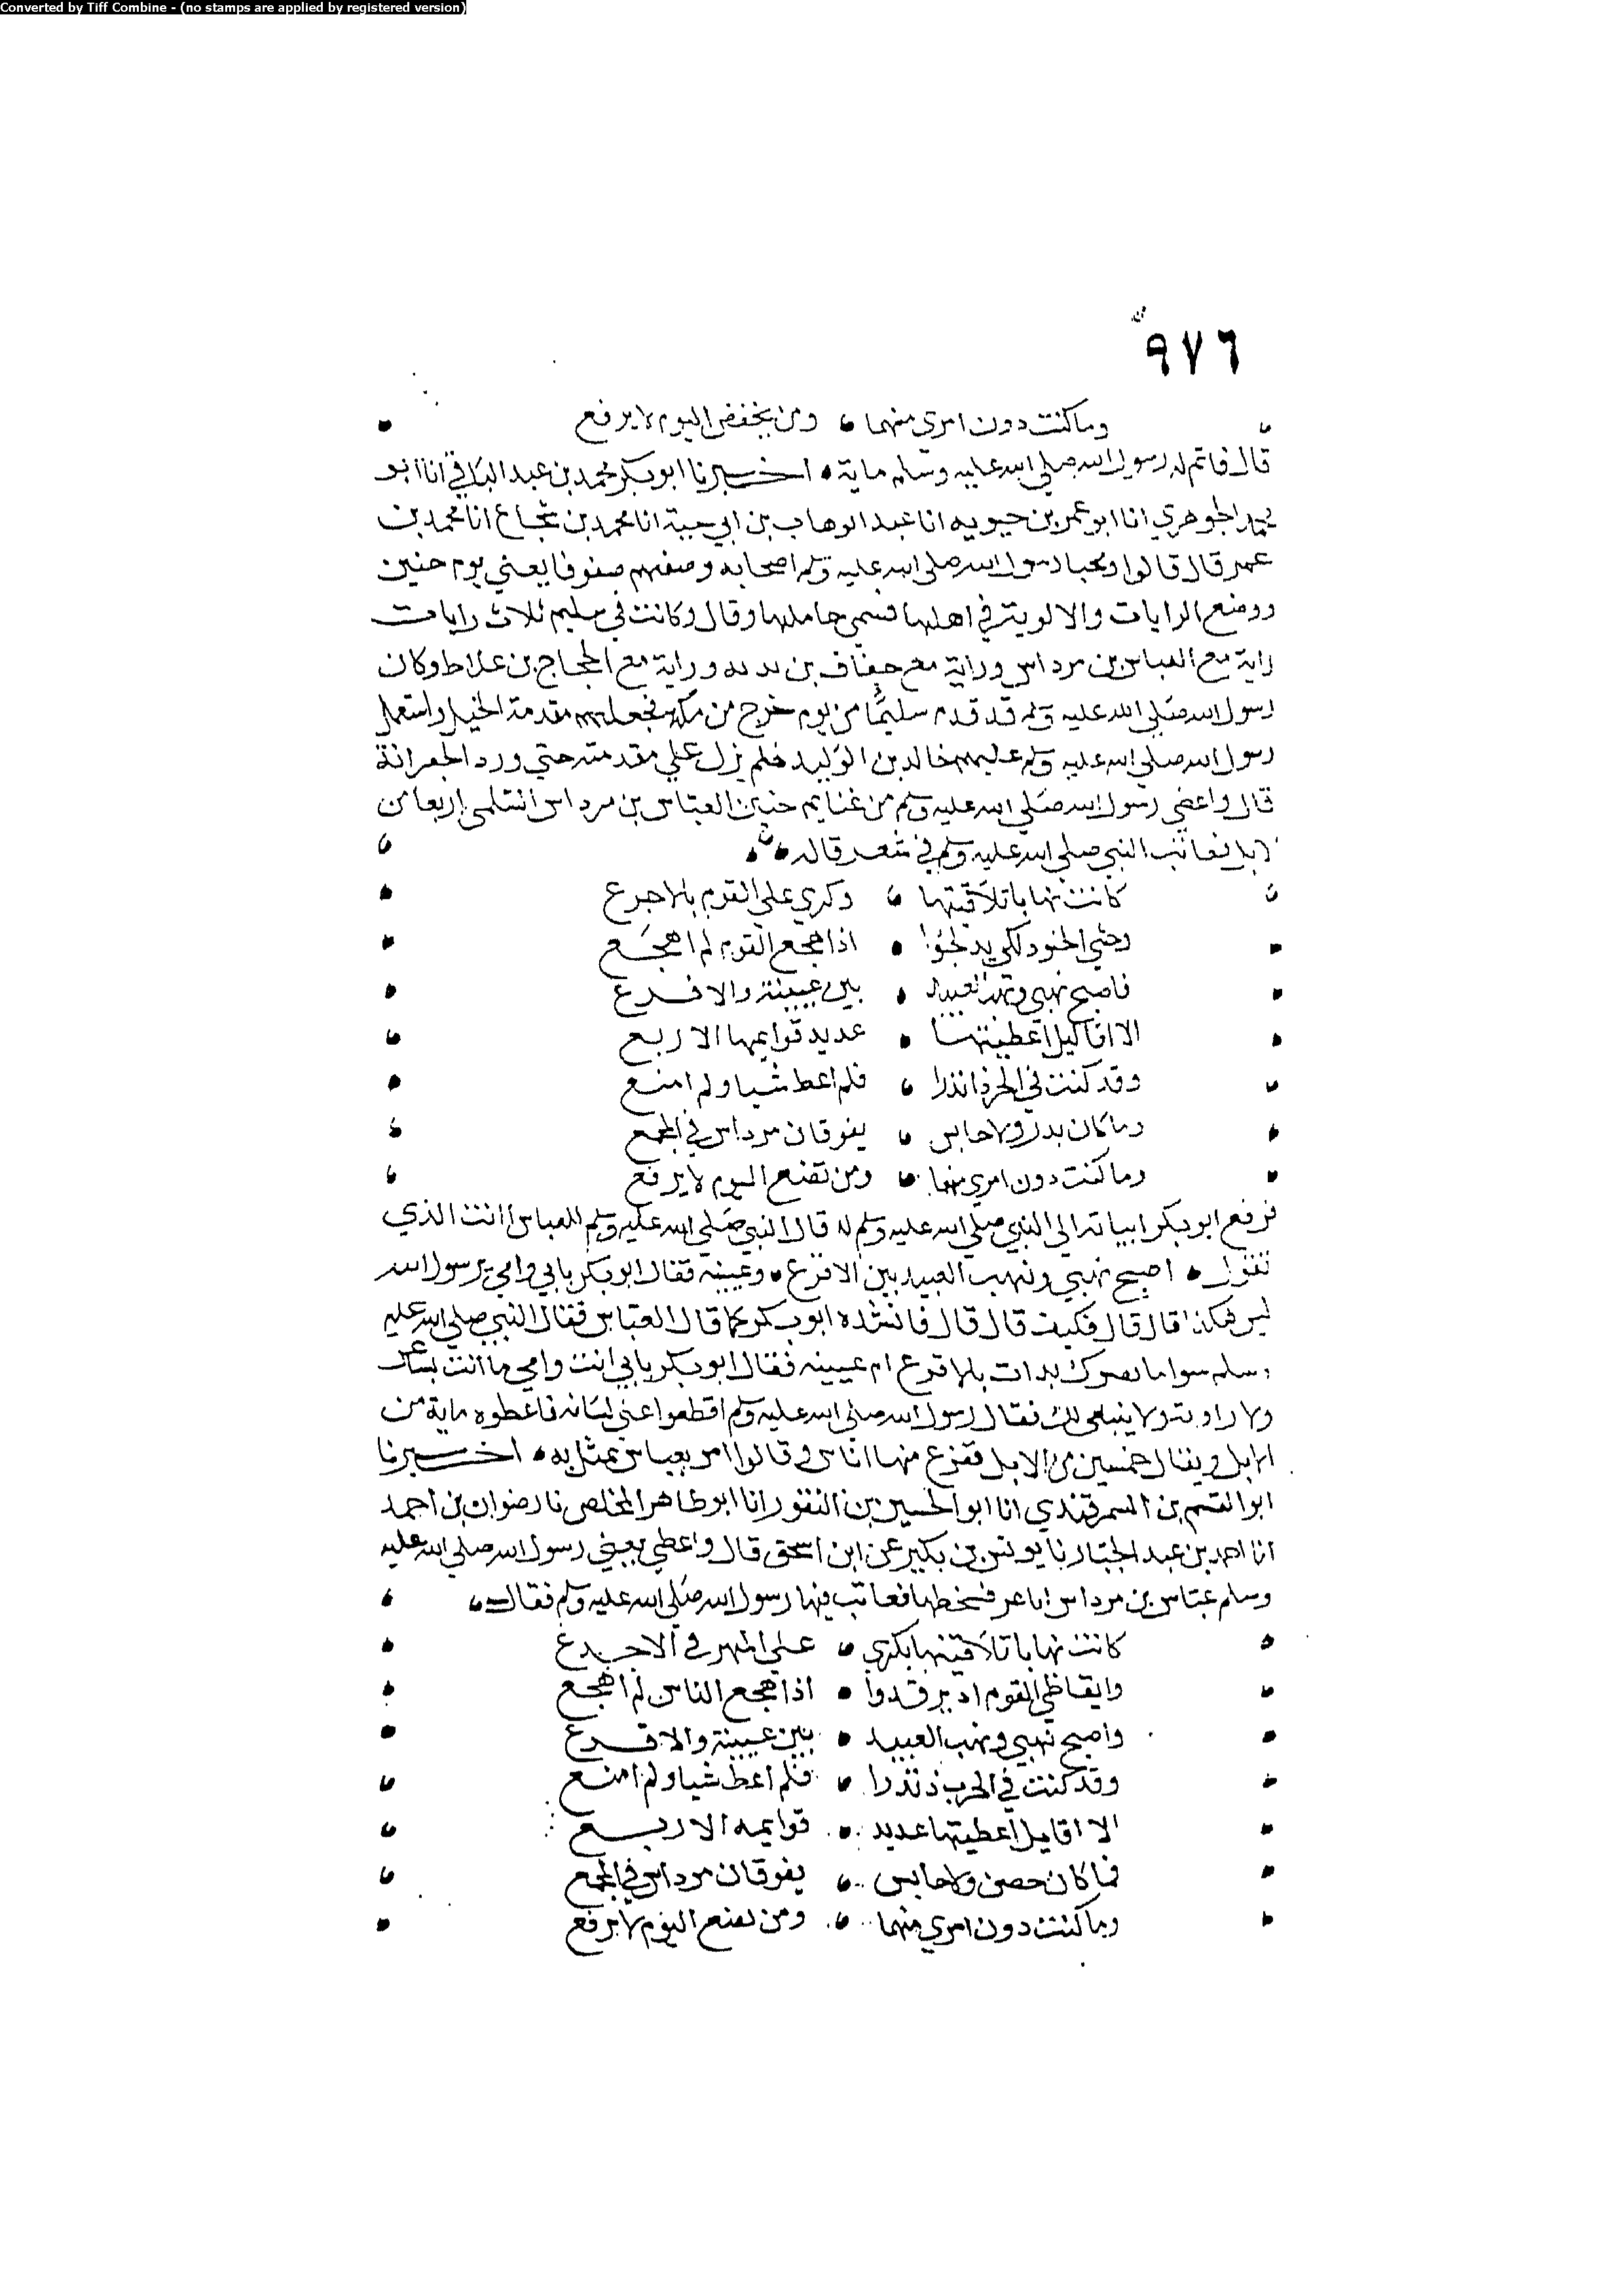 Converted by Tiff Combine - (no stamps are applied by registered version)
٩٧٦
وما كنت دون امري منهما ومن يخفض اليوم لا يرفع
قال فاتم له رسول الله صلي الله عليه وسلم ماية اخبرنا ابو بكر محمد بن عبد الباقي انا ابو
محمد الجوهري انا ابو عمر بن حيويه انا عبد الوهاب بن ابي حية انا محمد بن شجاع انا محمد بن
عمر قال قالوا وعبا رسول الله صلي الله عليه وسلم اصحابه وصفهم صفوفا يعني يوم حنين
ووضع الرايات والالوية في اهلها فسمي حامليها وقال وكانت في سليم ثلاث رايات
راية مع العباس بن مرداس وراية مع خفاف بن ندبه وراية مع الحجاج بن علاط وكان
رسول الله صلي الله عليه وسلم قد قدم سليما من يوم خرج من مكة فجعلهم مقدمة الخيل واستعمل
رسول الله صلي الله عليه وسلم عليهم خالد بن الوليد فلم يزل علي مقدمته حتي ورد الجعرانة
قال واعطي رسول الله صلي الله عليه وسلم من غنايم حنين العباس بن مرداس السلمي اربعا من
الابل فعاتب النبي صلي الله عليه وسلم في شعر قاله
كانت نهابا تلافيتها وكري علي القوم بالاجرع
وحثي الجنود لكي يدلجوا اذا هجع القوم لم اهجع
فاصبح نهبي ونهب العبيد بين عيينة والاقرع
الا افاكيل اعطيتها عديد قوايمها الاربع
وقد كنت في الحرب ذا تدرا فلم اعط شيا ولم امنع
وما كان بدر ولا حابس يفوقان مرداس في المجمع
وما كنت دون امري منهما ومن تضع اليوم لا يرفع
فرفع ابو بكر ابياته الي النبي صلي الله عليه وسلم له قال النبي صلي الله عليه وسلم للعباس اانت الذي
تقول اصبح نهبي ونهب العبيد بين الاقرع وعيينه فقال ابو بكر بابي وامي يرسول الله
ليس هكذا قال قال فكيف قال قال فانشده ابو بكر كما قال العباس فقال النبي صلي الله عليه
وسلم سوا ما يضرك بدات بالاقرع ام عيينه فقال ابو بكر بابي انت وامي ما انت بشاعر
ولا راوية ولا ينبغي لك فقال رسول الله صلي الله عليه وسلم اقطعوا عني لسانه فاعطوه ماية من
الابل ويقال خمسين من الابل ففزع منها اناس وقالوا امر بعباس يمثل به اخبرنا
ابو القسم بن السمرقندي انا ابو الحسين بن النقور انا ابو طاهر المخلص نا رضوان بن احمد
انا احمد بن عبد الجبار نا يونس بن بكير عن ابن اسحق قال واعطي يعني رسول الله صلي الله عليه
وسلم عباس بن مرداس اباعر فسخطها فعاتب فيها رسول الله صلي الله عليه وسلم فقال
كانت نهابا تلافيتها بكري علي المهر في الاجرع
وايقاظي القوم ان يرقدوا اذا هجع الناس لم اهجع
واصبح نهبي ونهب العبيد بين عيينة والاقرع
وقد كنت في الحرب ذا تدرا فلم اعط شيا ولم امنع
الا افايل اعطيتها عديد قوايمه الاربع
فما كان حصن ولا حابس يفوقان مرداس في المجمع
وما كنت دون امري منهما ومن تضع اليوم لا يرفع